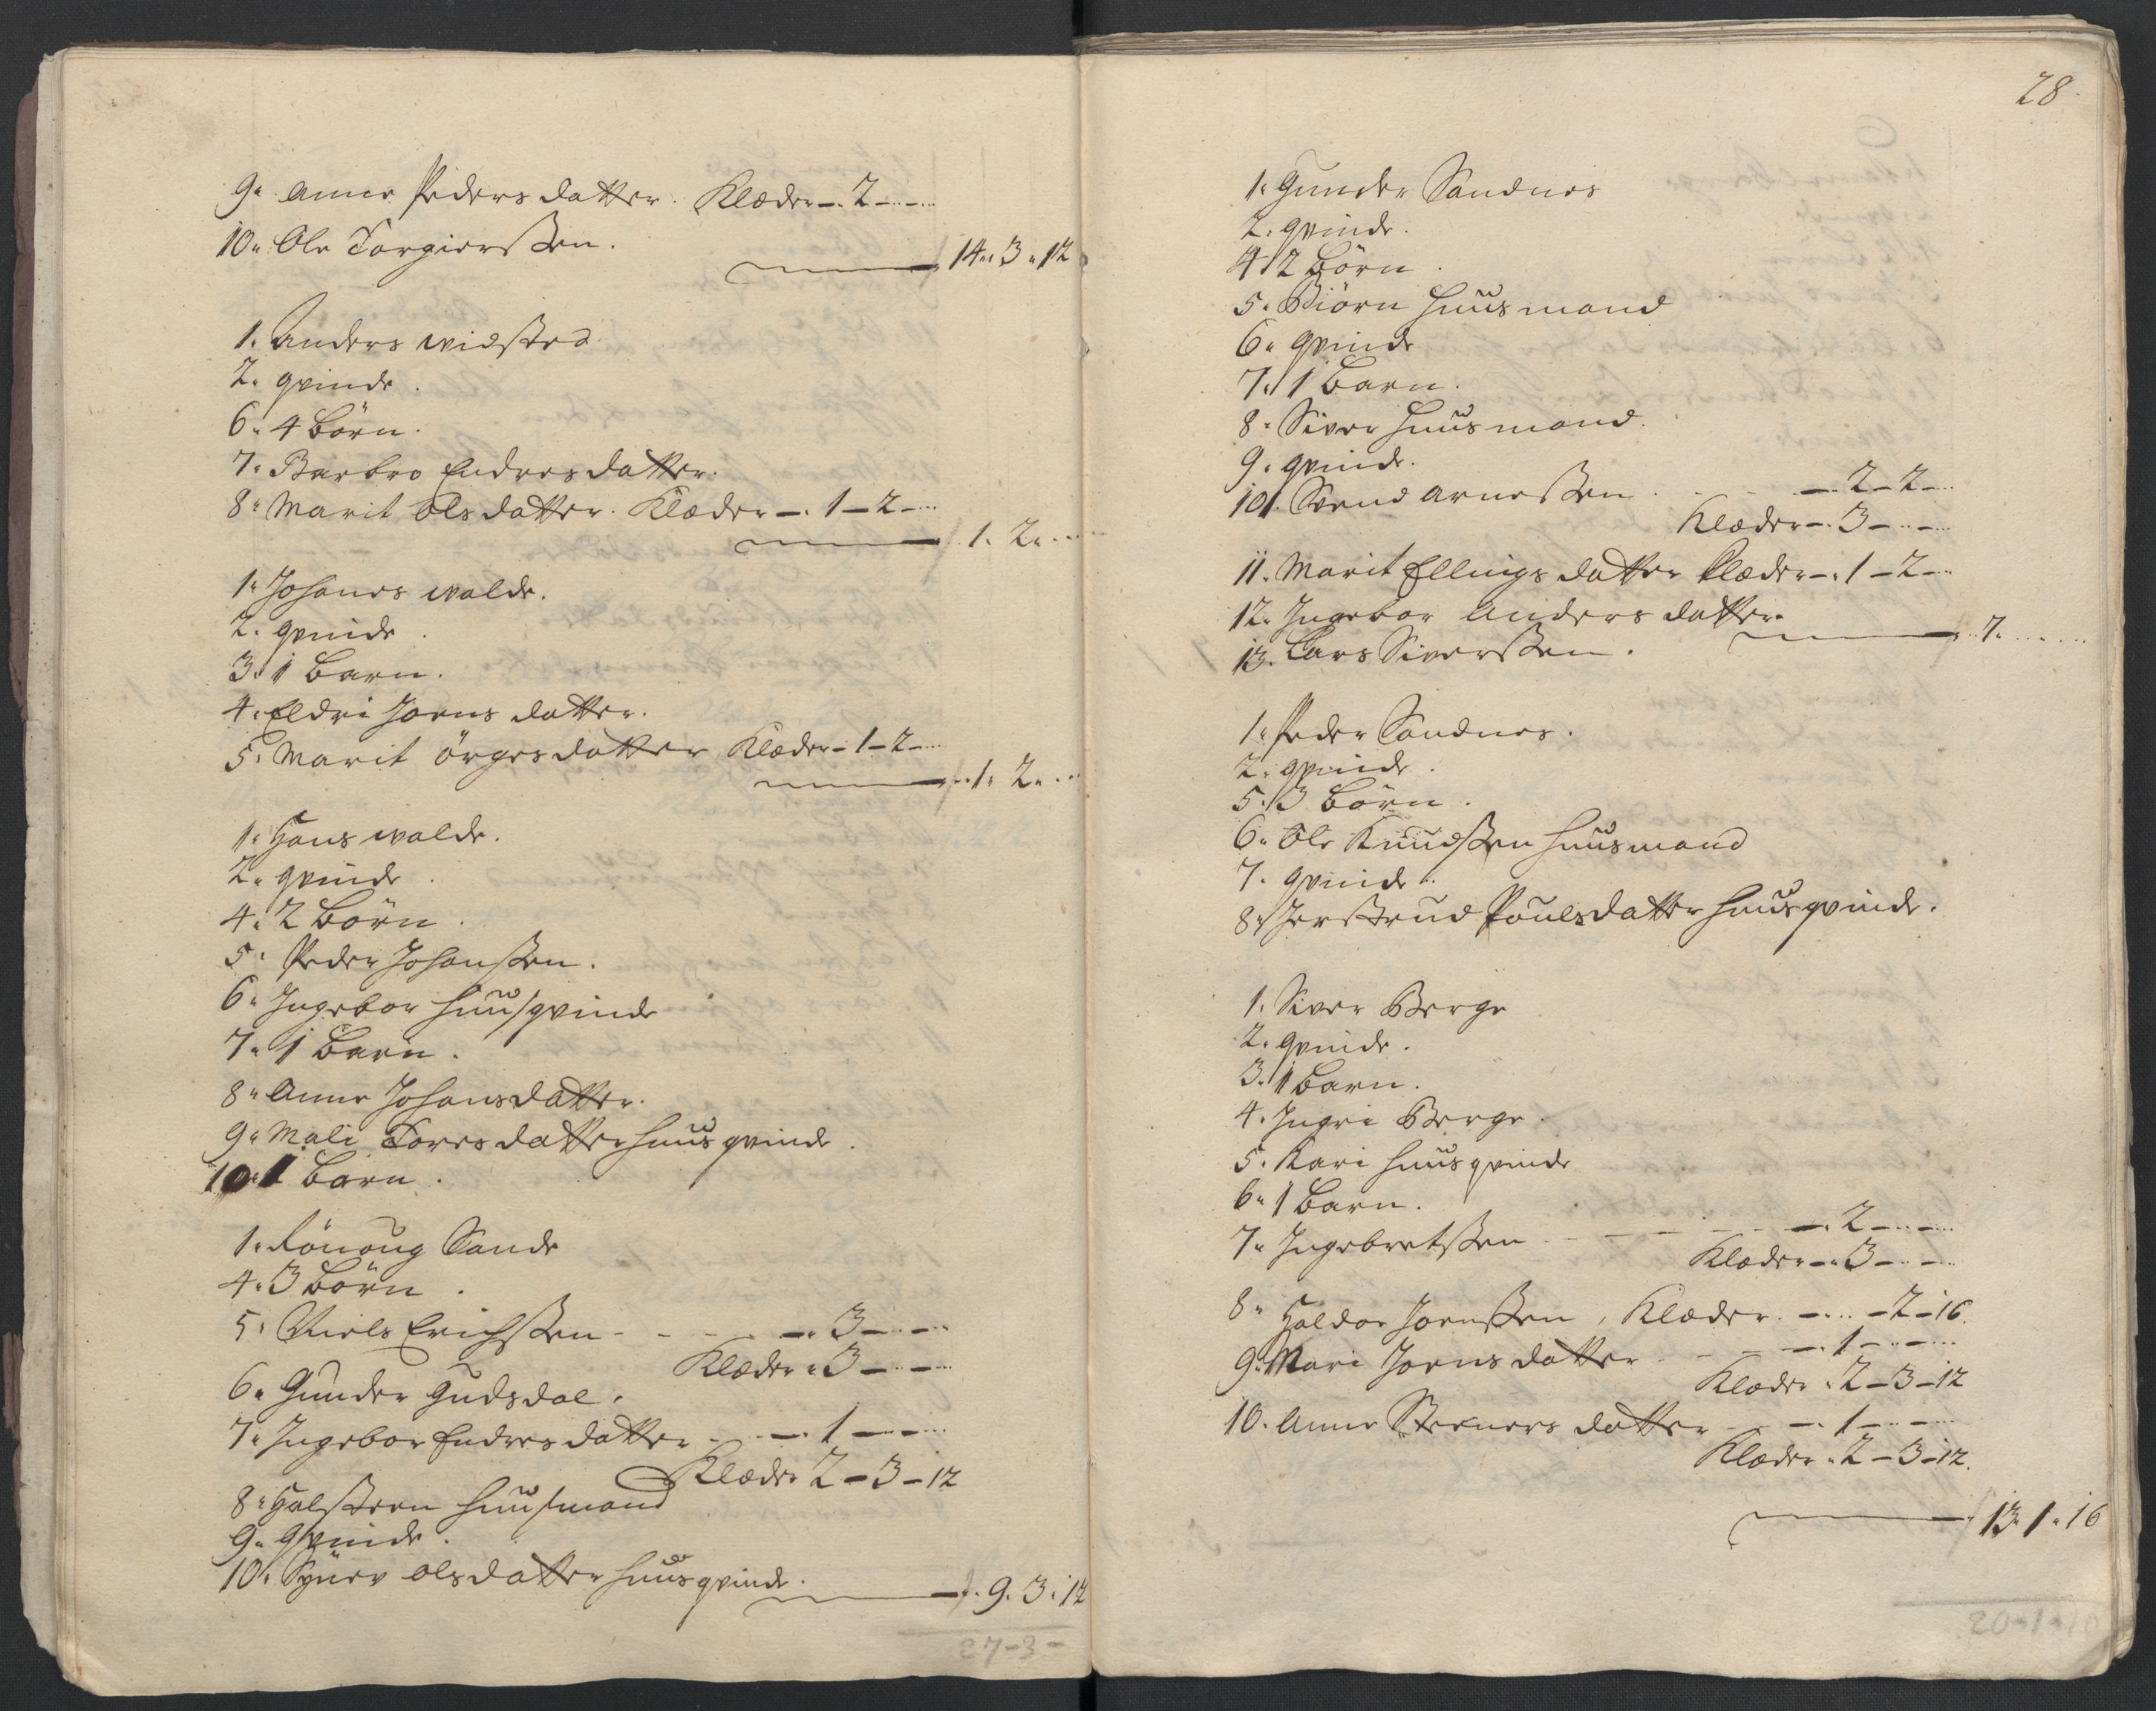 9. Anne Peders datter. Klæder -. 2 - .. - ..
10. Ole Torgierssen.
14. 3. 12
1. Anders widsted
2. qvinde.
6. 4 börn.
7. Barbro Endres datter.
8. Marit Olsdatter. Klæder -. 1 - 2 - ..
1. 2. ..
1. Johanes walde.
2. qvinde.
3. 1 barn.
4. Eldri Joens datter.
5. Marit örges datter Klæder - 1 - 2 - ..
1. 2. ..
1. Hans walde.
2. qvinde.
4. 2 börn.
5. Peder Johanssen.
6. Ingebor huusqvinde
7. 1 barn.
8. Anne Johansdatter.
9. Mali Tores datter huusqvinde.
10. 1 barn.
1. Rönoug Sande
4. 3 börn.
5. Niels Erichssen - - - -. 3 - .. - ..
Klæder. 3 - .. - ..
6. Gunder Gudsdal.
7. Ingebor Endres datter - - -. 1 - .. - ..
Klæder 2 - 3 - 12
8. Halsteen huusmand
9. qvinde.
10. Synev olsdatter huusqvinde.
9. 3. 12
27-3-
28.
1. Gunder Sandnes
2. qvinde.
4. 2 börn.
5. Biörn huusmand
6. qvinde
7. 1 barn.
8. Siver huusmand.
9. qvinde.
10. Svend Arnessen. - - -. 2 - 2 - ..
Klæder -. 3 - .. - ..
11. Marit Ellings datter Klæder -. 1 - 2 - ..
12. Ingebor Anders datter.
7. .. ..
13. Lars Siverssen.
1. Peder Sandnes.
2. qvinde.
5. 3 börn.
6. Ole Knudssen huusmand
7. qvinde.
8. Gerstrud Poulsdatter huusqvinde.
1. Siver Berge
2. qvinde.
3. 1 barn.
4. Ingri Berge.
5. Kari huusqvinde
6. 1 barn.
7. Ingebretssen - - - - -. 2 - .. - ..
Klæder -. 3 - .. - ..
8. Haldor Joenssen, Klæder. - .. - 2 - 16.
9. Mari Joens datter - - -. 1 - .. - ..
Klæder. 2 - 3 - 12
10. Anne Steners datter - -. 1 - .. - ..
Klæder. 2 - 3 - 12.
13. 1. 16
20-1-16